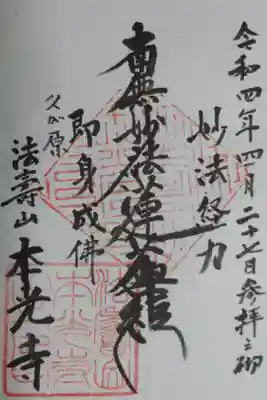 令和四年四月二十七日参拝之砌
妙法経力
南無妙法蓮華経
即身成佛
久が原
法壽山
本光寺